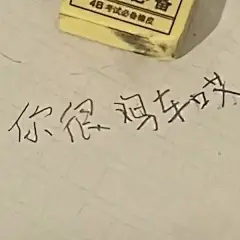 必备
4B考试必备橡皮
你很鸡车哎